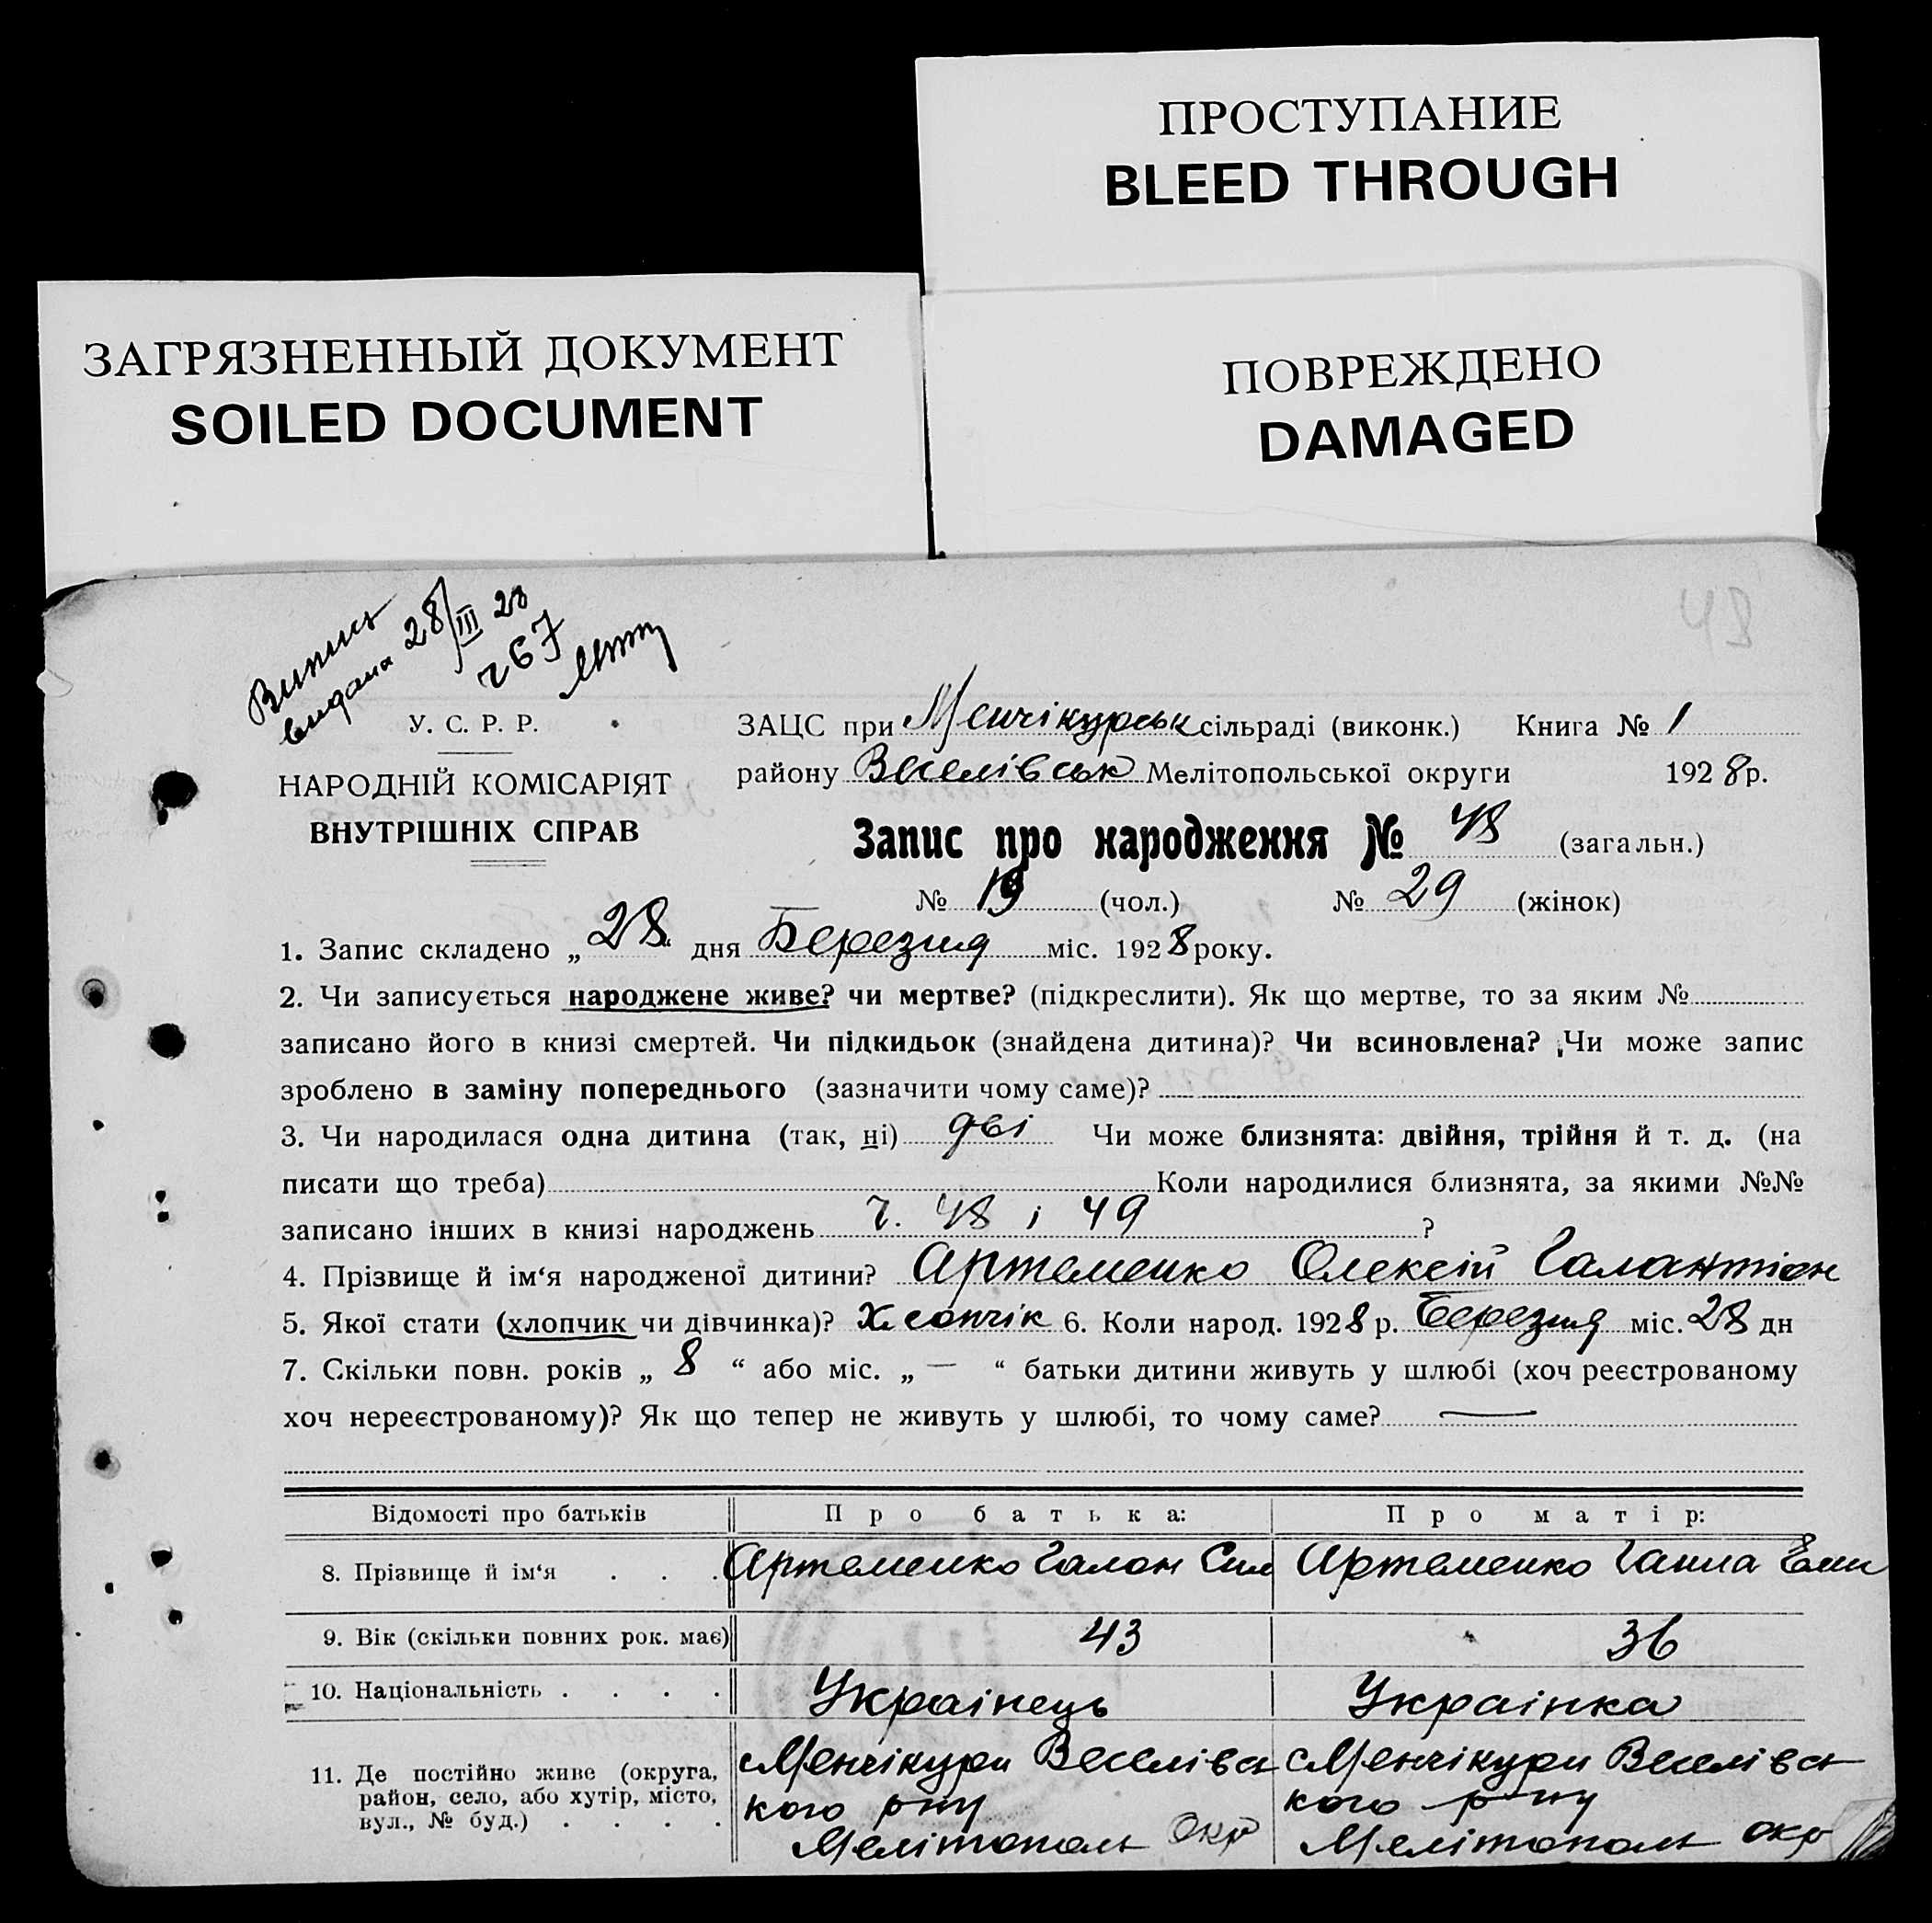 ПРОСТУПАНИЕ
BLEED THROUGH
ЗАГРЯЗНЕННЫЙ ДОКУМЕНТ
SOILED DOCUMENT
ПОВРЕЖДЕНО
DAMAGED
48
Випись
видана 28/III 28
ч 67
У. С. Р. Р.
НАРОДНІЙ КОМІСАРІЯТ
ВНУТРІШНІХ СПРАВ
ЗАЦС при Менчікурськ сільраді (виконк.) Книга № 1
району Веселівськ Мелітопольської округи 1928 р.
Запис про народження № 48 (загальн.)
№ 19 (чол.) № 29 (жінок)
1. Запис складено „28“ дня Березня міс. 1928 року.
2. Чи записується народжене живе? чи мертве? (підкреслити). Як що мертве, то за яким №
записано його в книзі смертей. Чи підкидьок (знайдена дитина)? Чи всиновлена? Чи може запис
зроблено в заміну попереднього (зазначити чому саме)?
3. Чи народилася одна дитина (так, ні) двi Чи може близнята: двійня, трійня й т. д. (на
писати що треба) Коли народилися близнята, за якими №№
записано інших в книзі народжень ч. 48 і 49 ?
4. Прізвище й ім‘я народженої дитини? Артеменко Олексій Галактіон
5. Якої стати (хлопчик чи дівчинка)? Хлопчік 6. Коли народ. 1928 р. Березня міс. 28 дн
7. Скільки повн. років „ 8 “ або міс. „ — “ батьки дитини живуть у шлюбі (хоч реєстрованому
хоч нереєстрованому)? Як що тепер не живуть у шлюбі, то чому саме? —
Відомості про батьків Про батька: Про матір:
8. Прізвище й ім‘я . . . Артеменко Галак Сил Артеменко Ганна Еми
9. Вік (скільки повних рок. має) 43 36
10. Національність . . . . Українець Українка
11. Де постійно живе (округа, район, село, або хутір, місто, вул., № буд.) . . . .
Менчікури Веселівсь
кого р-ну
Мелітополь окр
Менчікури Веселівсь
кого р-ну
Мелітополь окр